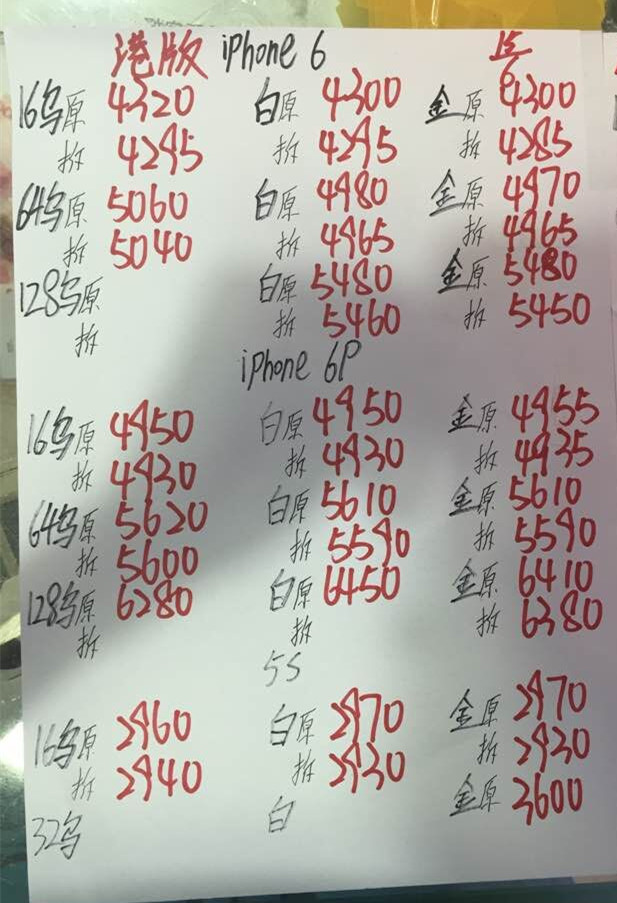 港版 iPhone 6
16乌原 4320 白原 4300 金原 4300
拆 4295 拆 4295 拆 4285
64乌原 5060 白原 4980 金原 4970
拆 5040 拆 4965 拆 4965
128乌原 白原 5480 金原 5480
拆 拆 5460 拆 5450
iPhone 6P
16乌原 4950 白原 4950 金原 4955
拆 4930 拆 4930 拆 4935
64乌原 5620 白原 5610 金原 5610
拆 5600 拆 5590 拆 5590
128乌原 6280 白原 6450 金原 6410
拆 拆 拆 6380
5S
16乌原 2960 白原 2970 金原 2970
拆 2940 拆 2930 拆 2930
32乌 白 金原 3600